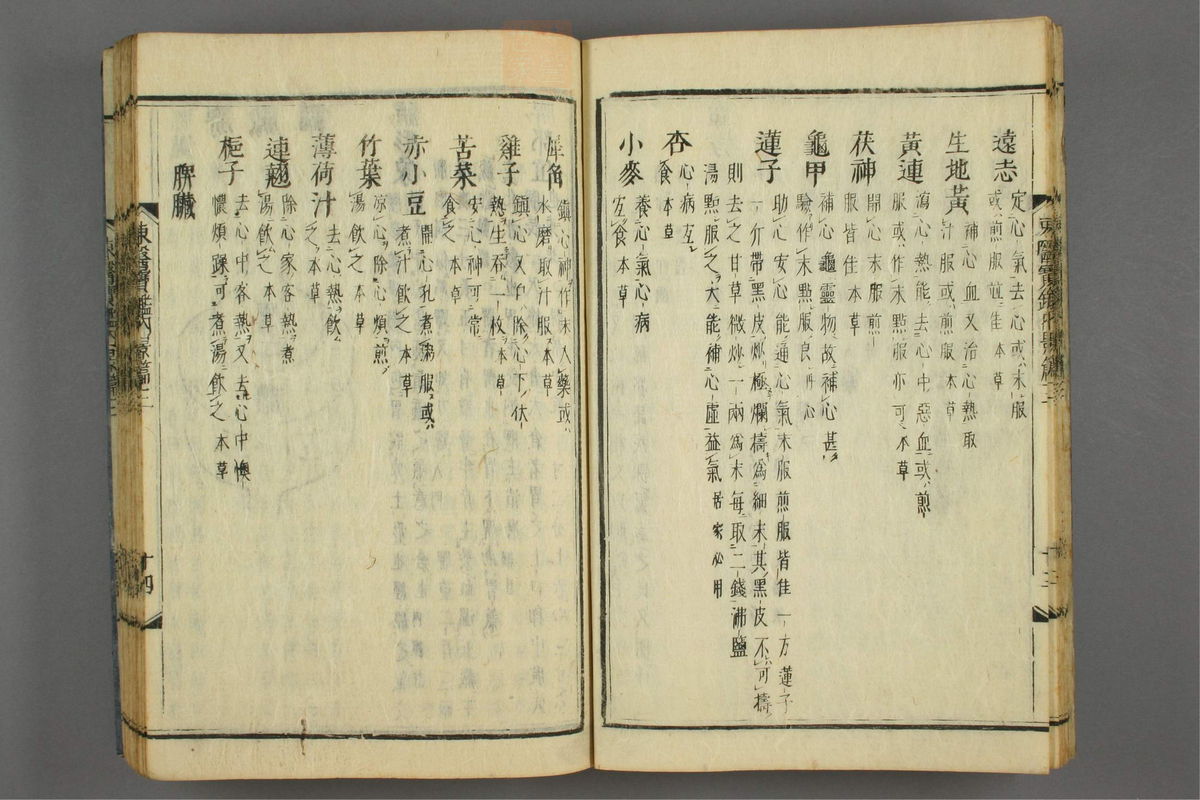 遠志
定心氣去心或末服
或煎服並佳 本草
生地黃
補心血又治心熱取
汁服或煎服 本草
黃連
瀉心熱能去心中惡血或煎
服或作末點服亦可 本草
茯神
開心末服煎
服皆佳 本草
龜甲
補心龜靈物故補心甚
驗作末點服良 丹心
蓮子
助心安心能通心氣末服煎服皆佳一方蓮子
一斤帶黑皮炒極爛擣爲細末其黑皮不可擣
則去之甘草微炒一兩爲末每取二錢沸鹽
湯點服之大能補心虛益氣 居家必用
杏
心病宜
食 本草
小麥
養心氣心病
宜食 本草
東醫寶鑑內景篇 三
十三
犀角
鎮心神作末入藥或
水磨取汁服 本草
雞子
鎮心又卒除心下伏
熱生吞一枚 本草
苦菜
安心神可常
食之 本草
赤小豆
開心孔煮粥服或
煮汁飲之 本草
竹葉
凉心除心煩煎
湯飲之
薄荷汁
去心熱飲
之 本草
連翹
除心家客熱煮
湯飲之 本草
梔子
去心中客熱又去心中懊
憹煩躁可煮湯飲之 本草
脾臟
東醫寶鑑內景篇 三
十四